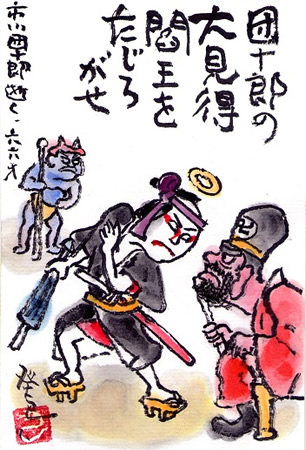 団十郎の
大見得
閻王を
たじろ
がせ
市川團十郎逝く、六六才